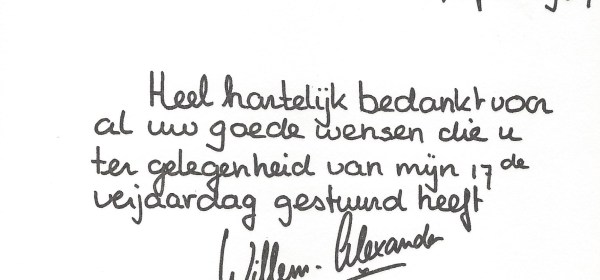 Heel hartelijk bedankt voor
al uw goede wensen die u
ter gelegenheid van mijn 17de
verjaardag gestuurd heeft
Willem-Alexander